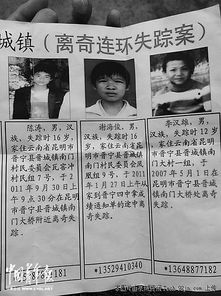 城镇（离奇连环失踪案）
陈涛，男，汉族，失踪时16岁，家住云南省昆明市晋宁县晋城镇南门村民委员会瓦窑冲村民组7号，于2011年9月30日上午9点30分在昆明市晋宁县晋城镇南门大桥附近离奇失踪。
谢海俊，男，汉族，失踪时16岁，家住云南省昆明市晋宁县晋城镇南门村民委员会瓦窑村民组9号，于2011年1月27日上午从家到晋宁四中拿成绩通知单的途中离奇失踪。
李汉雄，男，汉族，失踪时12岁，家住云南省昆明市晋宁县晋城镇南门大村一组，于2007年5月1日在昆明市晋宁县晋城镇南门大桥处离奇失踪。
181
*13529410340
*13648877182